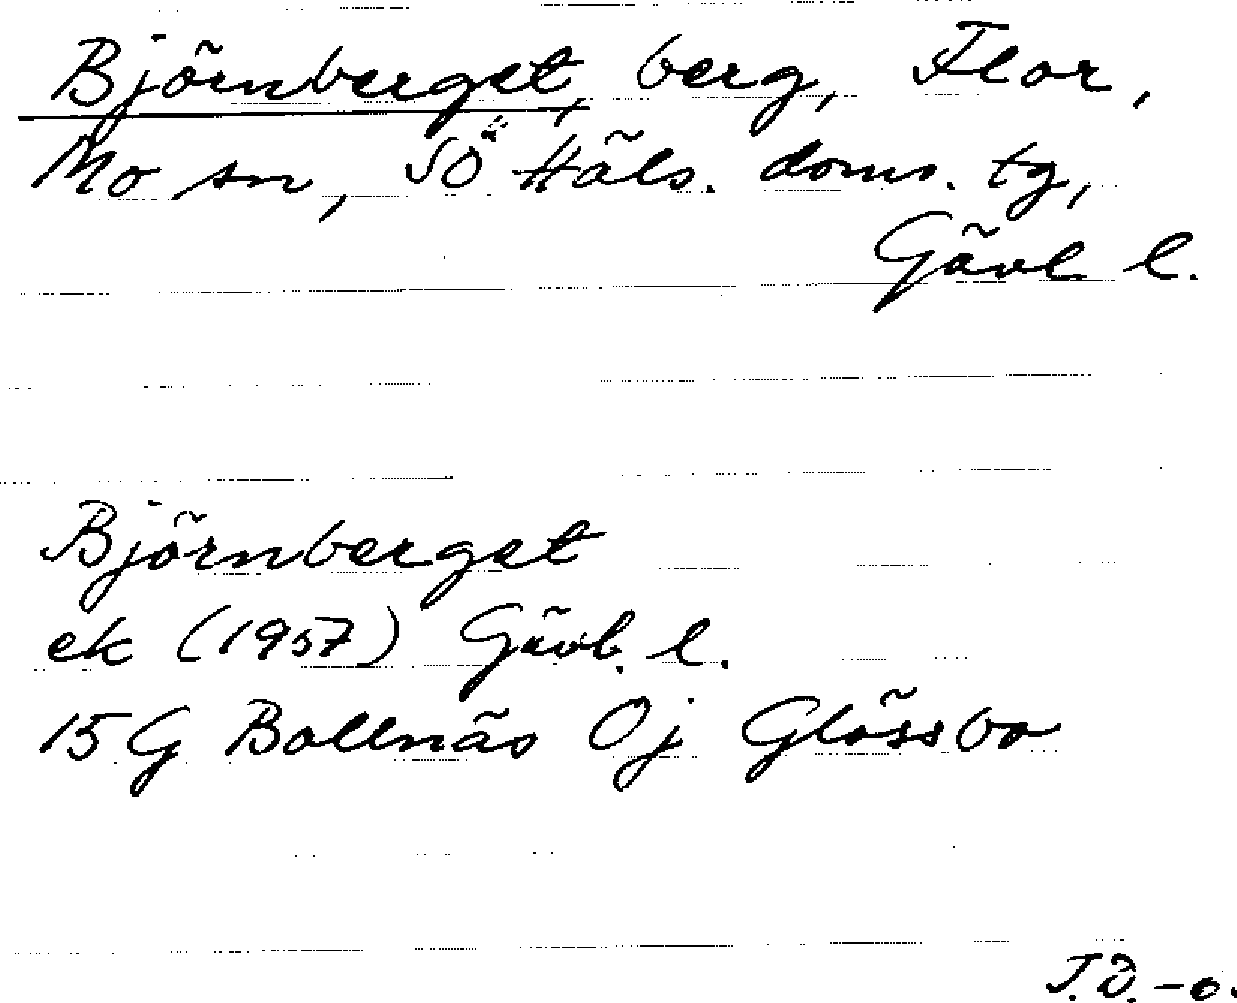 Björnberget, berg, Flor,
Mo sn, SÖ Häls. doms. tg,
Gävl. l.
Björnberget
ek (1957) Gävl. l.
15G Bollnäs 0j Glössbo